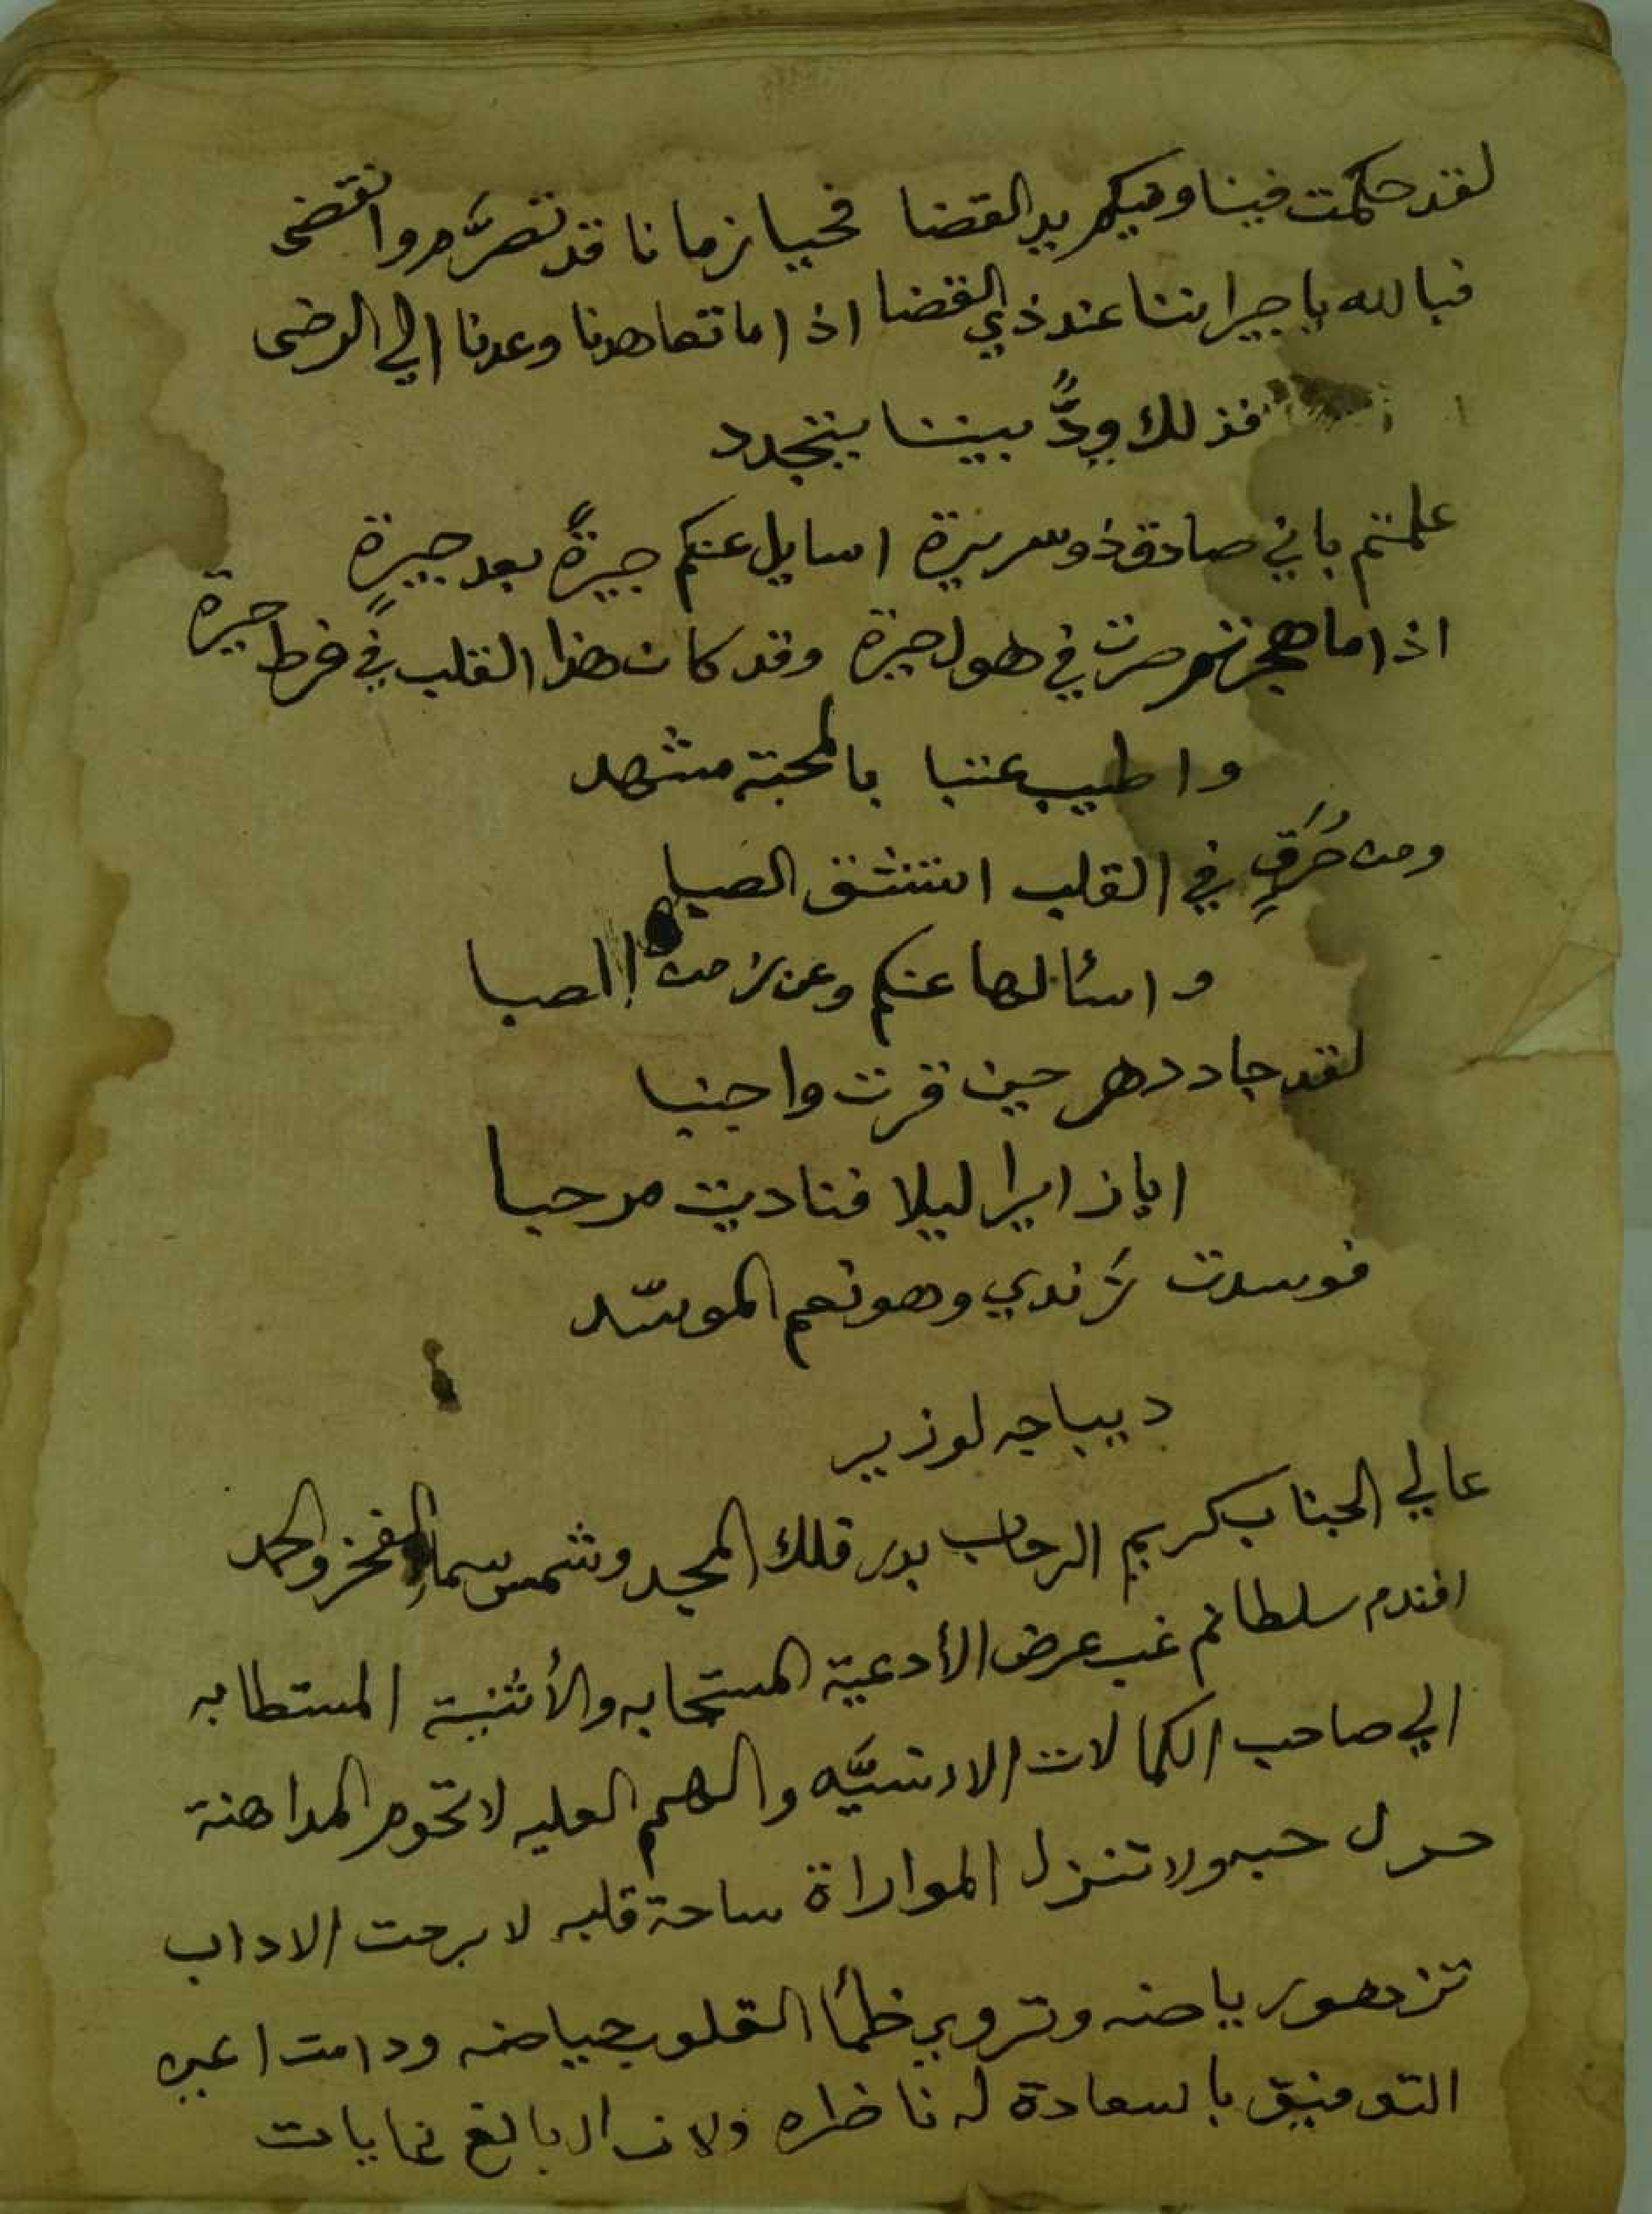 لقد حكمت فينا وفيكم يد القضا فحيا زمانا قد تصرَّم وانقضى
فبالله يا جيراننا عند ذي الغضا اذا ما تعاهدنا وعدنا الي الرضى
فذلك ودٌّ بيننا يتجدد
علمتم باني صادق ذو سريرة اسايل عنكم جيرةً بعد جيرة
اذا ما هجرتم صرت في هول حيرة وقد كان هذا القلب في فرط حيرة
واطيب عتبا بالمحبة مشهد
ومن حُرَقٍ في القلب استنشق الصبا
واسئالها عنكم وعن زمن الصبا
لقد جاد دهر حين قرت واجنبا
ايا زايرا ليلا فناديت مرحبا
فوسدت زندي وهو نعم الموسّد
ديباجه لوزير
عالي الجناب كريم الرحاب بدر فلك المجد وشمس سما الفخر والحمد
افندم سلطانم غب عرض الأدعية المستجابه والأثنية المستطابه
الي صاحب الكمالات الانسيَّه والهمم العليه لا تحوم المداهنة
حول حبه ولا تنزل الموارة ساحة قلبه لا برحت الاداب
تزهو رياضه وتروي ظمأ القلوب حياضه ودامت اعين
التوفيق بالسعادة له ناظره ولا زال بالغ غايات